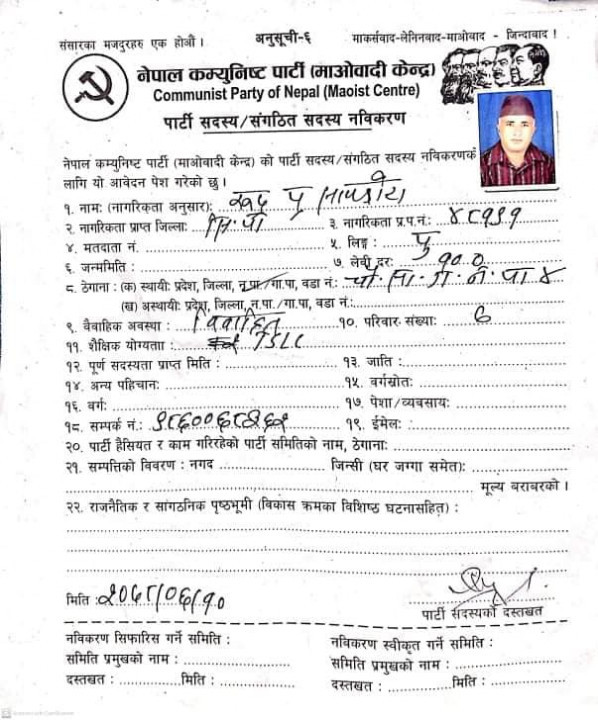 संसारका मजदुरहरु एक होऔं । अनुसूची-६ माकर्सवाद-लेनिनवाद-माओवाद - जिन्दावाद !
नेपाल कम्युनिष्ट पार्टी (माओवादी केन्द्र)
Communist Party of Nepal (Maoist Centre)
पार्टी सदस्य/संगठित सदस्य नविकरण
नेपाल कम्युनिष्ट पार्टी (माओवादी केन्द्र) को पार्टी सदस्य/संगठित सदस्य नविकरणक
लागि यो आवेदन पेश गरेको छु ।
१. नामः (नागरिकता अनुसार):
२. नागरिकता प्राप्त जिल्लाः ३. नागरिकता प्र.प.नं.: ४८९१९
४. मतदाता नं. ५. लिङ्ग : पु
६. जन्ममिति : ७. लेवी दरः १००
८. ठेगाना : (क) स्थायीः प्रदेश, जिल्ला, न.पा./गा.पा, वडा नं.: ४
(ख) अस्थायीः प्रदेश, जिल्ला, न.पा./गा.पा, वडा नं.:
९. वैवाहिक अवस्था : विवाहित १०. परिवार संख्याः ६
११. शैक्षिक योग्यताः TSLC
१२. पूर्ण सदस्यता प्राप्त मिति : १३. जाति :
१४. अन्य पहिचानः १५. वर्गस्रोतः
१६. वर्गः १७. पेशा/व्यवसायः
१८. सम्पर्क नं.: १९. ईमेलः
२०. पार्टी हैसियत र काम गरिरहेको पार्टी समितिको नाम, ठेगानाः
२१. सम्पत्तिको विवरण : नगद जिन्सी (घर जग्गा समेत):
मूल्य बराबरको ।
२२. राजनैतिक र सांगठनिक पृष्ठभूमी (विकास क्रमका विशिष्ठ घटनासहित) :
मिति : २०७८/०६/१०
पार्टी सदस्यको दस्तखत
नविकरण सिफारिस गर्ने समिति : नविकरण स्वीकृत गर्ने समिति :
समिति प्रमुखको नाम : समिति प्रमुखको नाम :
दस्तखत : मिति : दस्तखत : मिति :